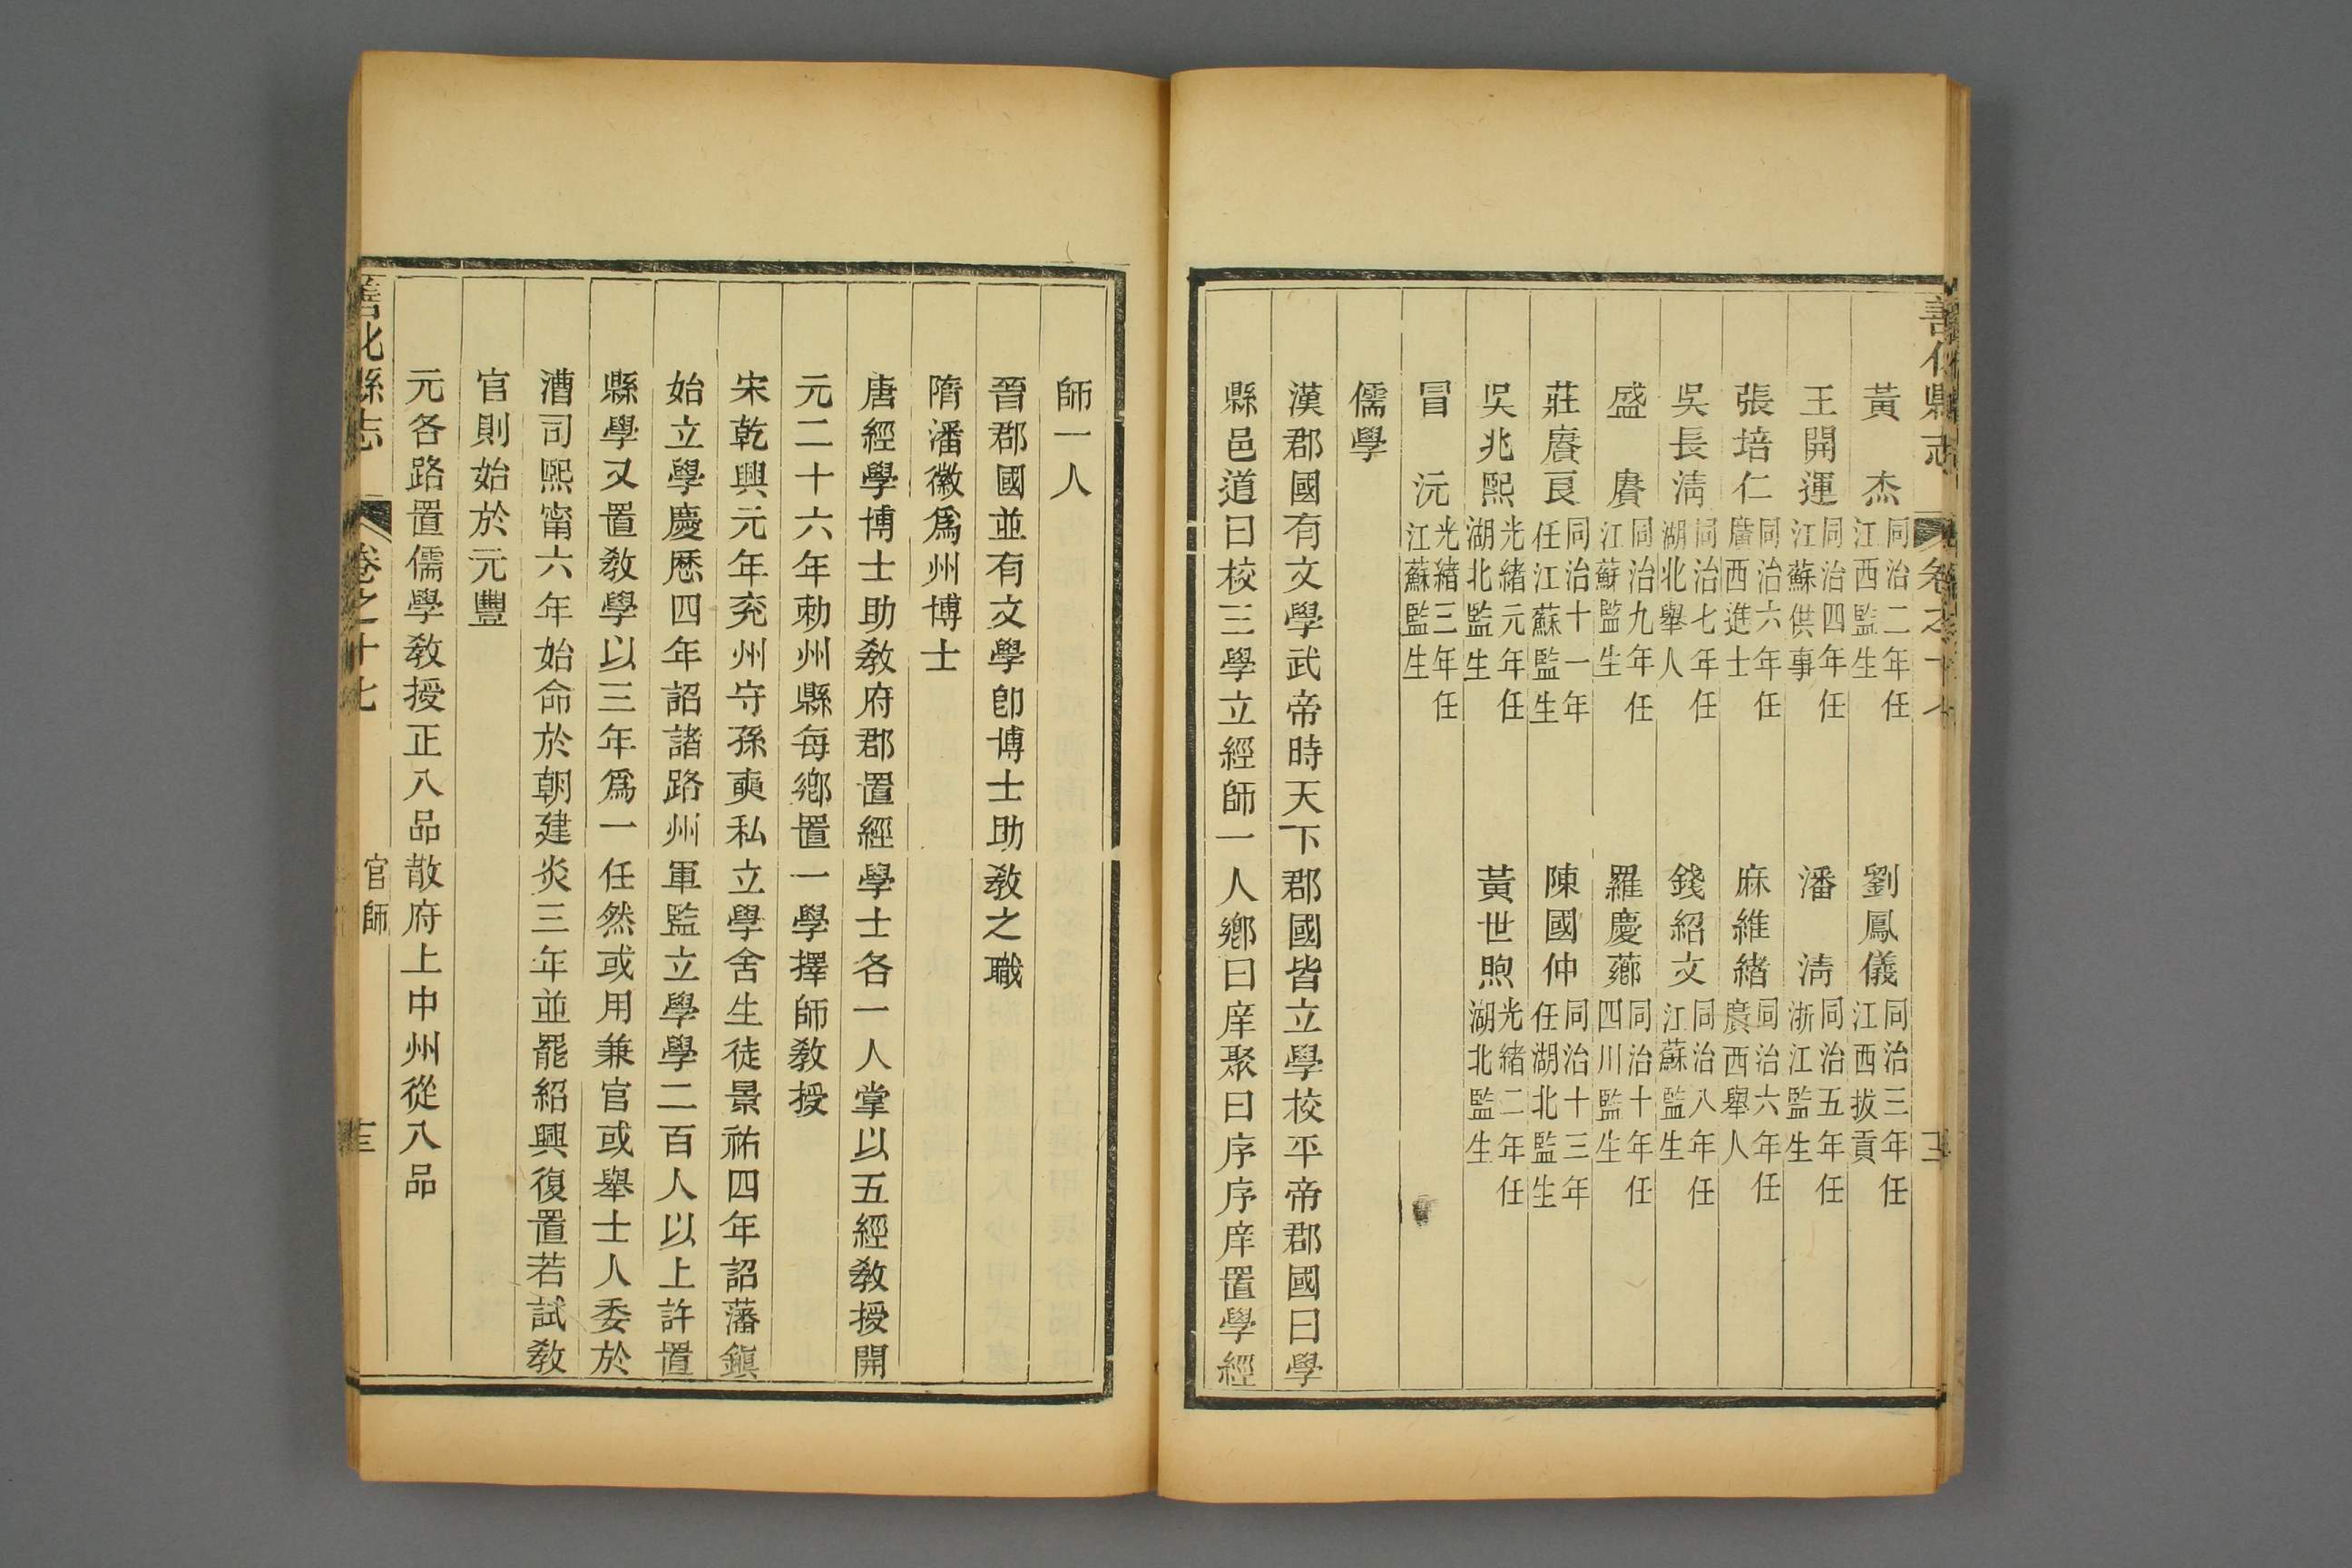 善化縣志 卷之十七
黃　杰 同治二年任江西監生　劉鳳儀 同治三年任江西拔貢
王開運 同治四年任江蘇供事　潘　淸 同治五年任浙江監生
張培仁 同治六年任廣西進士　麻維緒 同治六年任廣西舉人
吳長淸 同治七年任湖北舉人　錢紹文 同治八年任江蘇監生
盛　賡 同治九年任江蘇監生　羅慶薌 同治十年任四川監生
莊賡良 同治十一年任江蘇監生　陳國仲 同治十三年任湖北監生
吳兆熙 光緒元年任湖北監生　黃世煦 光緒二年任湖北監生
冒　沅 光緒三年任江蘇監生
儒學
漢郡國有文學武帝時天下郡國皆立學校平帝郡國曰學
縣邑道曰校三學立經師一人鄉曰庠聚曰序序庠置學經
師一人
晉郡國並有文學卽博士助敎之職
隋潘徽爲州博士
唐經學博士助敎府郡置經學士各一人掌以五經敎授開
元二十六年勅州縣每鄉置一學擇師敎授
宋乾興元年兖州守孫奭私立學舍生徒景祐四年詔藩鎭
始立學慶歷四年詔諸路州軍監立學學二百人以上許置
縣學又置敎學以三年爲一任然或用兼官或舉士人委於
漕司熙甯六年始命於朝建炎三年並罷紹興復置若試敎
官則始於元豐
元各路置儒學敎授正八品散府上中州從八品
善化縣志 卷之十七 官師